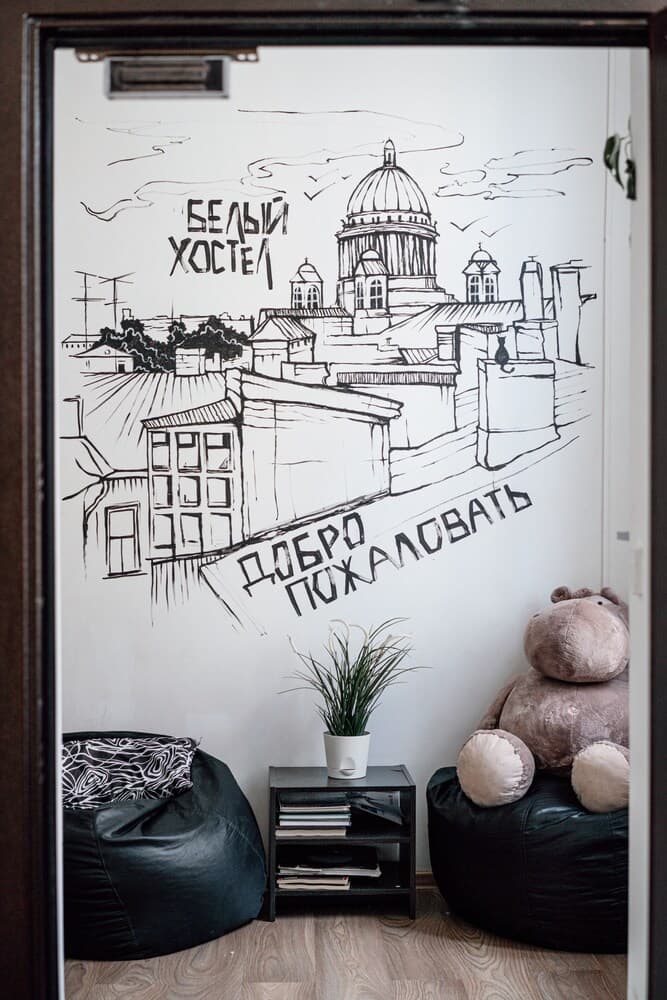 БЕЛЫЙ
ХОСТЕЛ
ДОБРО
ПОЖАЛОВАТЬ